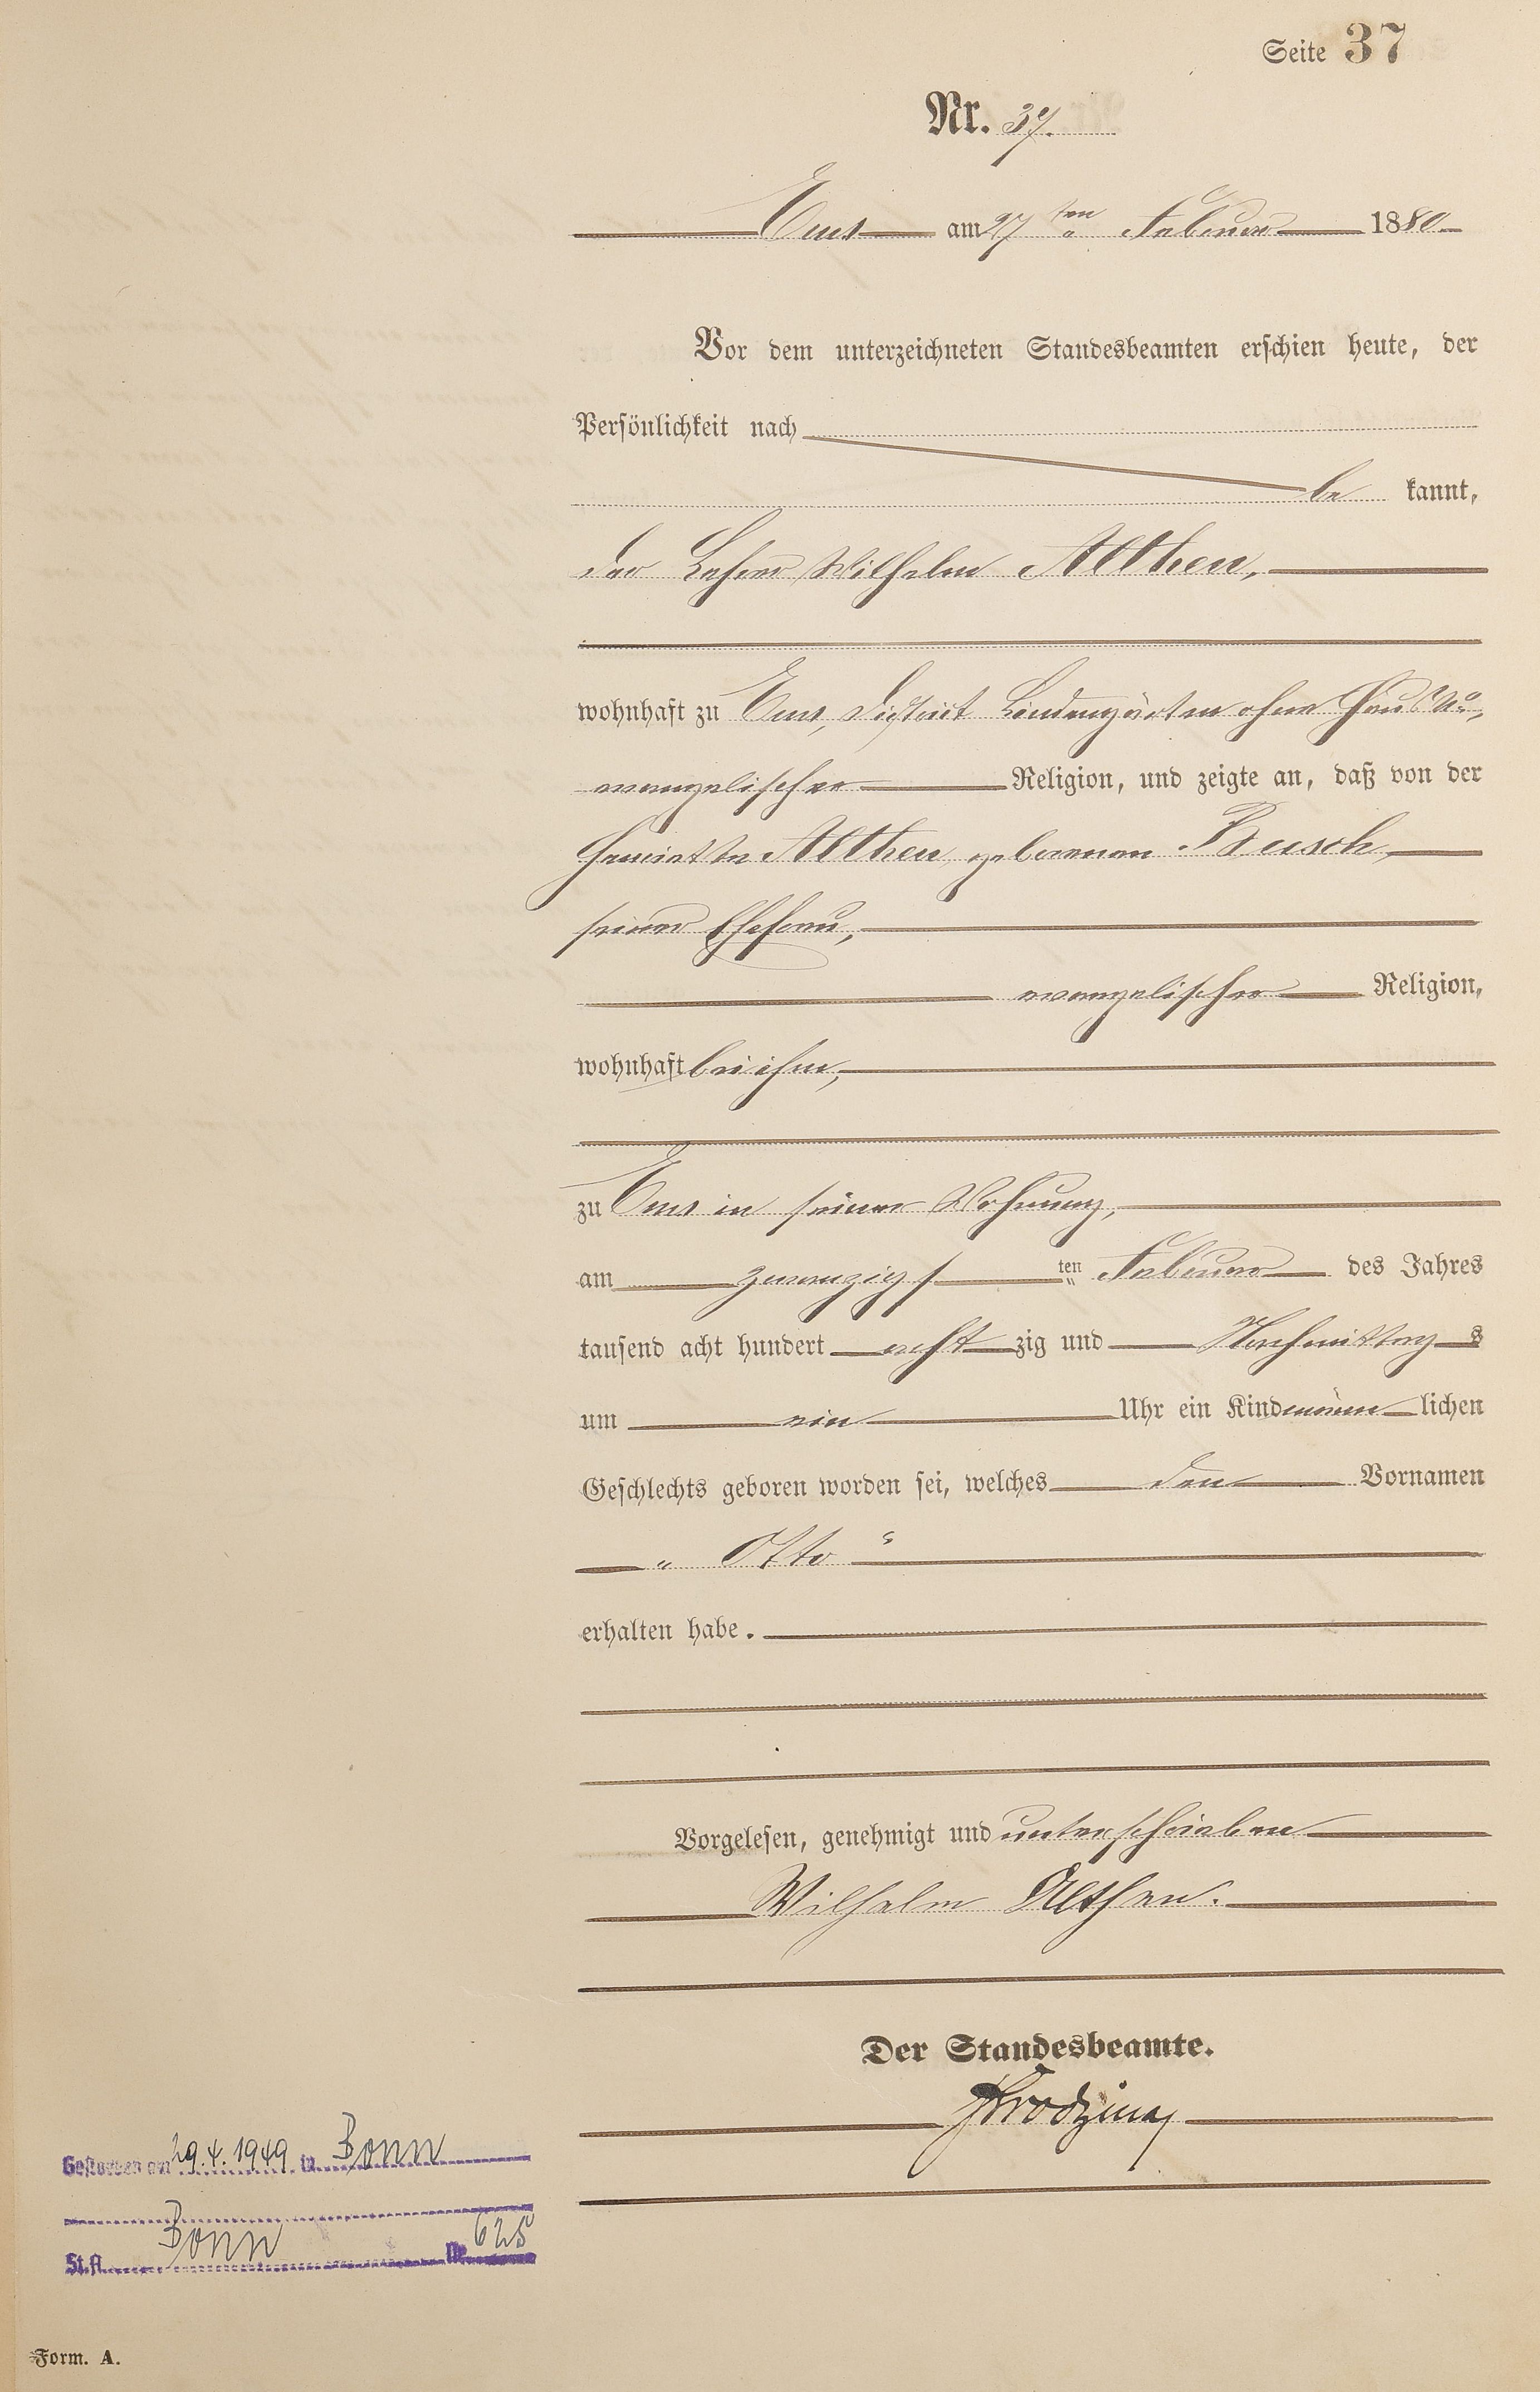 Seite 37
Nr. 37.
Ems am 27 ten Februar 1880
Vor dem unterzeichneten Standesbeamten erschien heute, der
Persönlichkeit nach
be kannt,
der Lehrer Wilhelm Althen,
wohnhaft zu Ems, District Lindengärten ohne Haus No,
evangelischer Religion, und zeigte an, daß von der
Henriette Althen, geborenen Busch,
seiner Ehefrau,
evangelischer Religion,
wohnhaft bei ihm,
zu Ems in seiner Wohnung,
am zwanzigs ten Februar des Jahres
tausend acht hundert acht zig und Nachmittag s
um ein Uhr ein Kind männ lichen
Geschlechts geboren worden sei, welches den Vornamen
„ Otto “
erhalten habe.
Vorgelesen, genehmigt und unterschrieben
Wilhelm Althen.
Der Standesbeamte.
Gestorben am 29.4.1949 in Bonn
St.A. Bonn Nr. 625
Form. A.